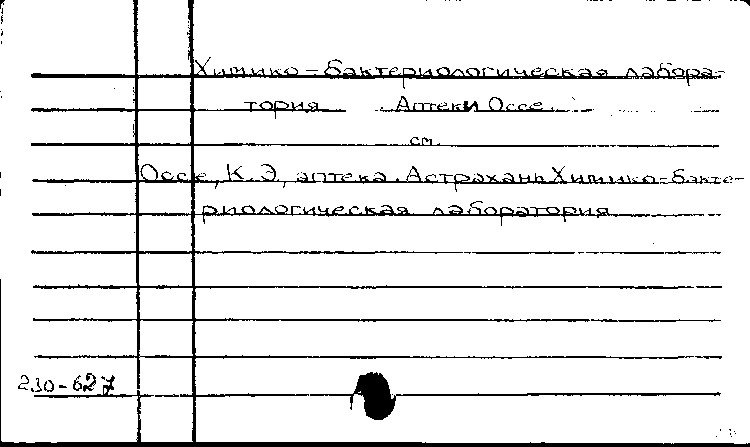 Химико-бактериологическая лабора-
тория Аптеки Оссе.
см.
Оссе, К. Э, аптека. Астрахань Химико-бакте-
риологическая лаборатория
230-627